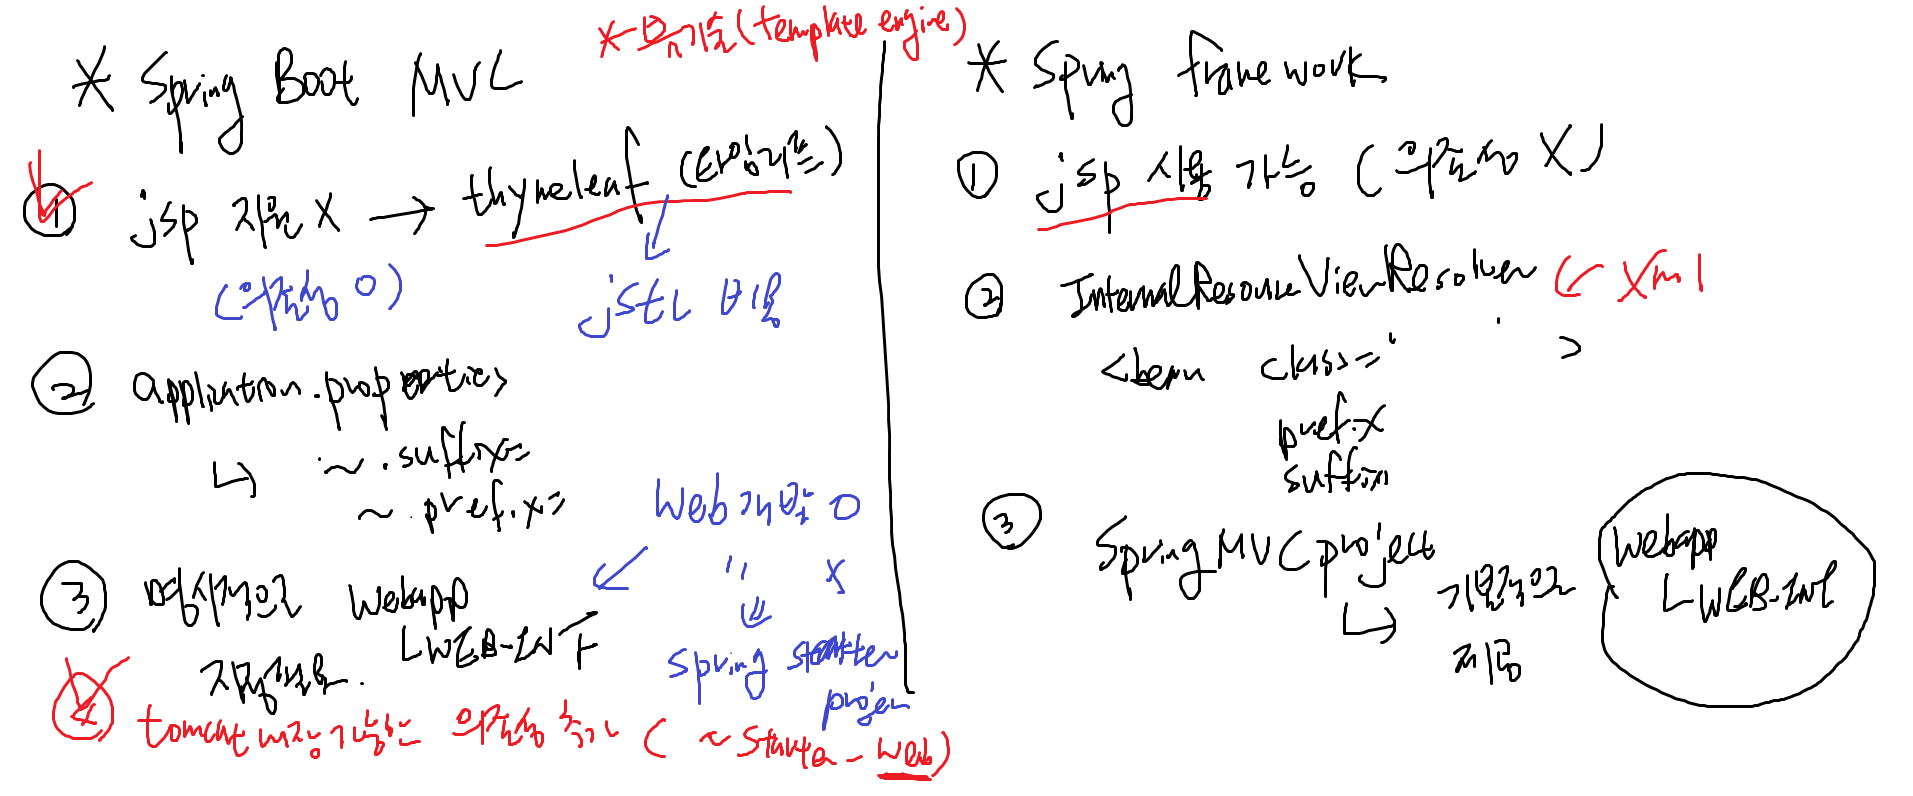 * 뷰 기술(template engine)
* Spring Boot MVC
① jsp 지원 X → thymeleaf (타임리프)
(의존성 O)
jstl 비슷
② application.properties
↳ ~.suffix=
~.prefix=
Web 개발 O
" X
③ 명시적으로 webapp
└ WEB-INF
spring starter
project
④ tomcat 내장기능한 의존성 추가 ( ~starter-web)
* Spring framework
① jsp 사용 가능 (의존성 X)
② InternalResourceViewResolver ← xml
<bean class=' ' >
prefix
suffix
③ Spring MVC project
↳ 기본적으로
제공
webapp
└ WEB-INF